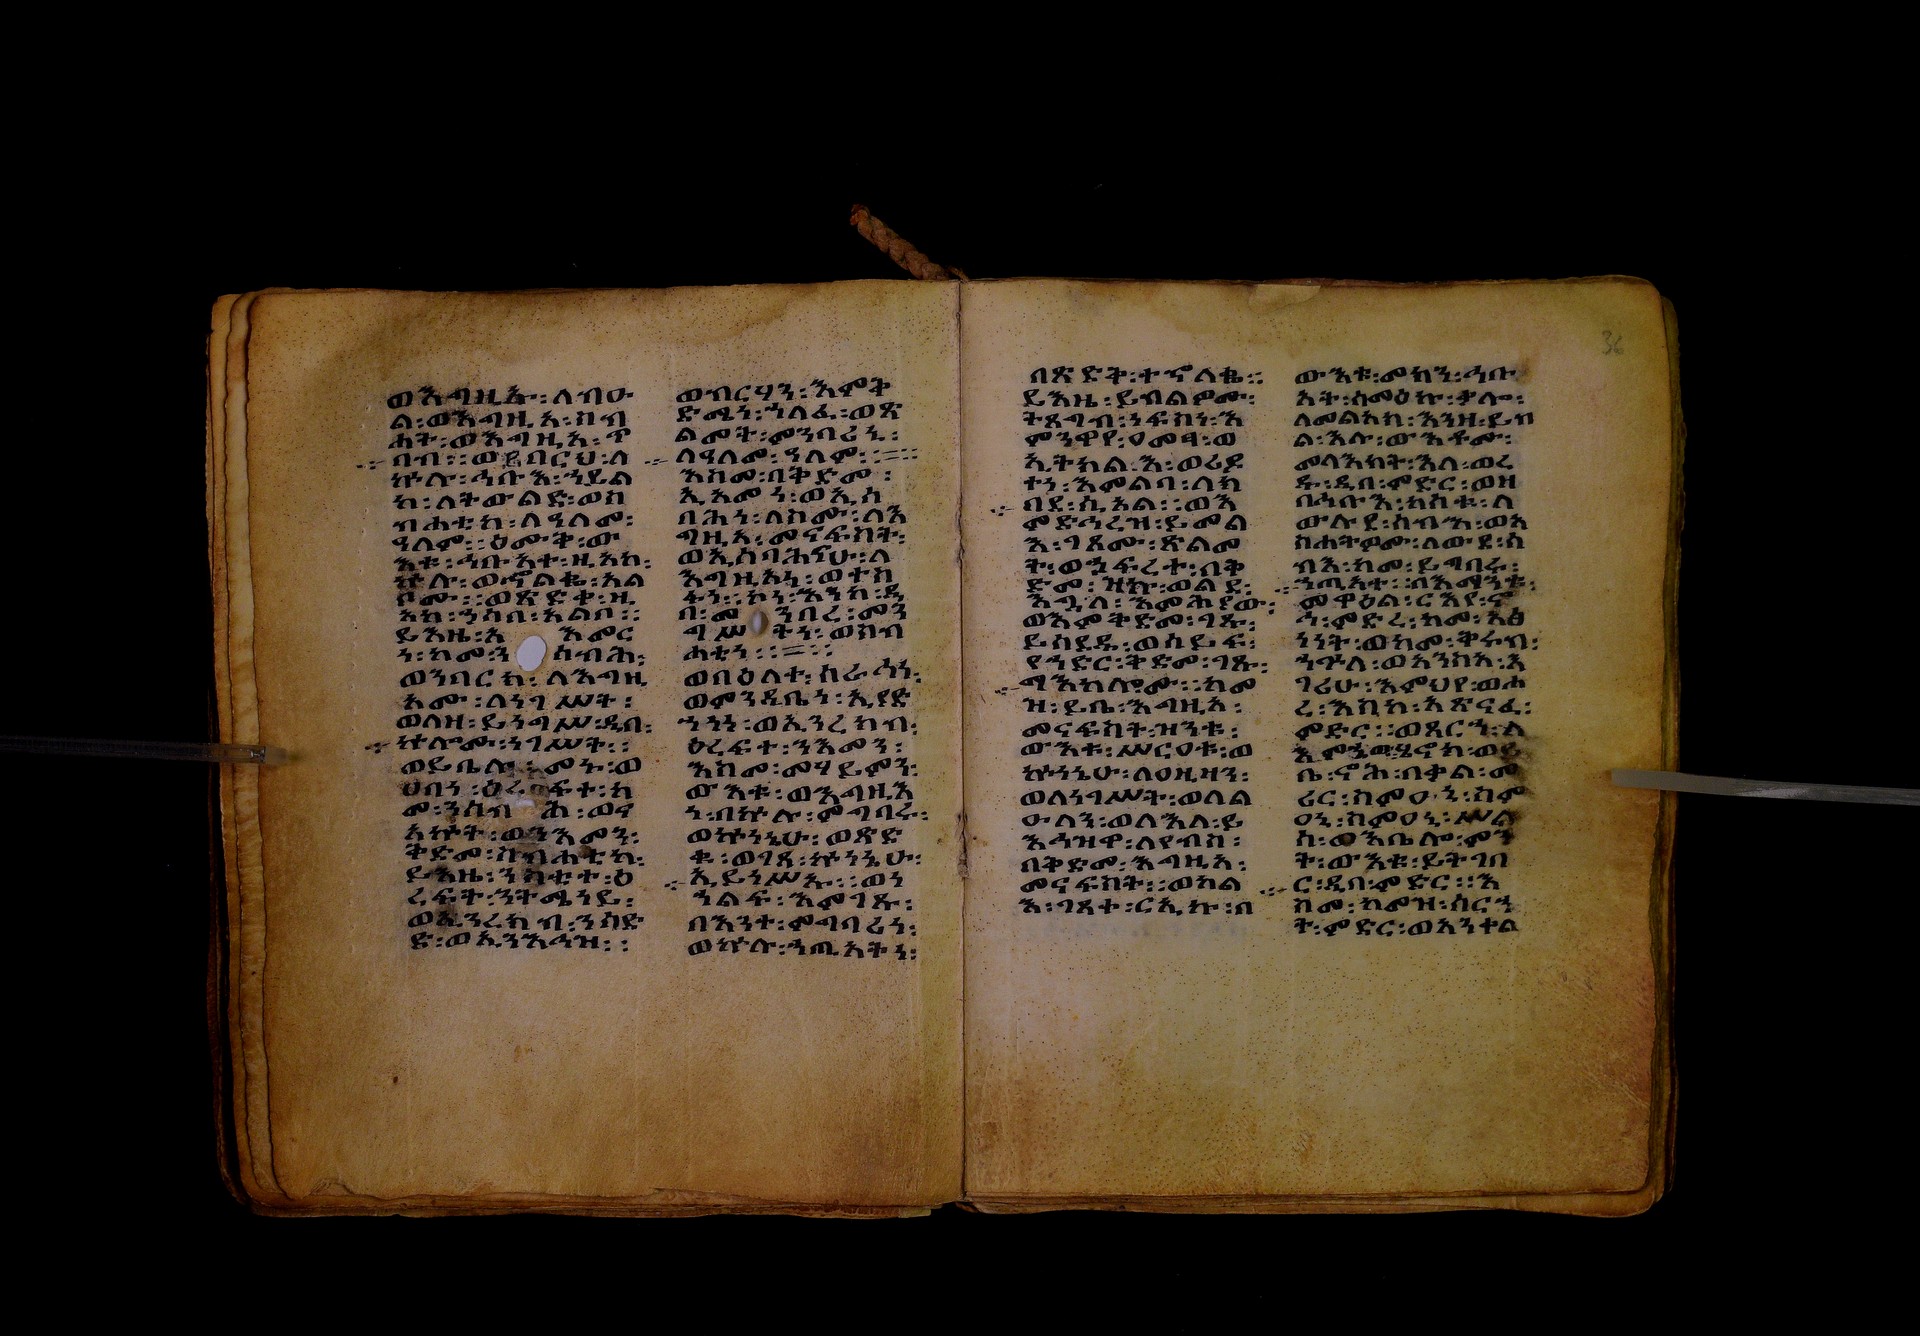 ወእግዚኡ፡ለብዑ
ል፡ወእግዚአ፡ስብ
ሐት፡ወእግዚአ፡ጥ
በብ፡፡ወይበርህ፡ለ
ኵሉ፡ኅቡእ፡ኀይል
ከ፡ለትውልድ፡ወስ
ብሐቲከ፡ለዓለመ፡
ዓለም፡፡ዕሙቅ፡ው
እቱ፡ኅቡአት፡ዚአከ፡
ኵሉ፡ወኆልቈ፡አል
ቦሙ፡፡ወጽድቅ፡ዚ
አከ፡ኀሳበ፡አልቦ፡፡
ይእዜ፡አ እመር
ነ፡ከመ፡ን ሰብሕ፡
ወንባርክ፡ለእግዚ
አሙ፡ለነገሥት፡
ወለዘ፡ይነግሥ፡ዲበ፡
ኵሎሙ፡ነገሥት፡፡
ወይቤሉ፡መኑ፡ወ
ሀበነ፡ዕረፍተ፡ከ
መ፡ንሰብ ሕ፡ወና
አኵት፡ወንእመን፡
ቅድመ፡ስብሐቲከ፡
ይእዜ፡ንስቲተ፡ዕ
ረፍት፡ንትሜነይ፡
ወኢንረክብ፡ንሰድ
ድ፡ወኢንእኅዝ፡፡
ወብርሃን፡እምቅ
ድሜነ፡ኀለፈ፡ወጽ
ልመት፡ምንባሪነ፡
ለዓለመ፡ዓለም፡፡
እስመ፡በቅድመ፡
ኢአመነ፡ወኢሰ
ባሕነ፡ለስሙ፡ለእ
ግዚአ፡መናፍስት፡
ወኢሰባሕናሁ፡ለ
እግዚእነ፡ወተስ
ፋነ፡፡ኮነ፡እንከ፡ዲ
በ፡መ ንበረ፡መን
ግሥ ትነ፡ወስብ
ሐቲነ፡፡
ወበዕለተ፡ስራሓነ፡
ወምንዳቤነ፡ኢያድ
ኅነነ፡ወኢንረክብ፡
ዕረፍተ፡ንእመን፡
እስመ፡መሃይምን፡
ውእቱ፡ወእግዚእ
ነ፡በኵሉ፡ምግባሩ፡
ወኵነኔሁ፡ወጽድ
ቁ፡ወገጸ፡ኵነኔሁ፡
ኢይነሥኡ፡፡ወነ
ኀልፍ፡እምገጹ፡
በእንተ፡ምግባሪነ፡
ወኵሉ፡ኀጢአትነ፡
በጽድቅ፡ተኆለቈ፡፡
ይእዜ፡ይብልዎሙ፡
ትጸግብ፡ነፍስነ፡እ
ምንዋየ፡ዐመፃ፡ወ
ኢትከልእ፡ወሪደ
ተነ፡እምልባ፡ለክ
በደ፡ሲኦል፡፡ወእ
ምድኅረዝ፡ይመል
እ፡ገጾሙ፡ጽልመ
ት፡ወኀፍረተ፡በቅ
ድመ፡ዝኩ፡ወልደ፡
እጓለ፡እመሕያው፡
ወእምቅድመ፡ገጹ፡
ይሰደዱ፡ወሰይፍ፡
የኀድር፡ቅድመ፡ገጹ፡
ማእከሎሙ፡፡ከመ
ዝ፡ይቤ፡እግዚአ፡
መናፍስት፡ዝንቱ፡
ውእቱ፡ሥርዐቱ፡ወ
ኵነኔሁ፡ለዐዚዛን፡
ወለነገሥት፡ወለል
ዑላን፡ወለእለ፡ይ
እኅዝዋ፡ለየብስ፡
በቅድመ፡እግዚአ፡
መናፍስት፡፡ወካል
አ፡ገጻተ፡ርኢኩ፡በ
ውእቱ፡መካን፡ኅቡ
አት፡ሰመዕኩ፡ቃሎ፡
ለመልአክ፡እንዘ፡ይብ
ል፡እሉ፡ውእቶሙ፡
መላእክት፡እለ፡ወረ
ዱ፡ዲበ፡ምድር፡ወዘ
ኅቡእ፡ከሰቱ፡ለ
ውሉደ፡ሰብእ፡ወአ
ስሐትዎሙ፡ለውደ፡ሰ
ብእ፡ከመ፡ይግበሩ፡
ኀጢአተ፡፡በእማንቱ፡
መዋዕል፡ርእየ፡ኖ
ኅ፡ምድረ፡ከመ፡አፅ
ነነት፡ወከመ፡ቅሩብ፡
ኀጕላ፡ወአንስአ፡እ
ገሪሁ፡እምህየ፡ወሐ
ረ፡እስከ፡አጽናፈ፡
ምድር፡፡ወጸርኀ፡ለ
እምሔው፡ሄኖክ፡ወይ
ቤ፡ኖሕ፡በቃል፡መ
ሪር፡ስምዐኒ፡ስም
ዐኒ፡ስምዐኒ፡ሥል
ሰ፡ወእቤሎ፡ምን
ት፡ውእቱ፡ይትገበ
ር፡ዲበ፡ምድር፡፡እ
ስመ፡ከመዝ፡ሰርኀ
ት፡ምድር፡ወአንቀል